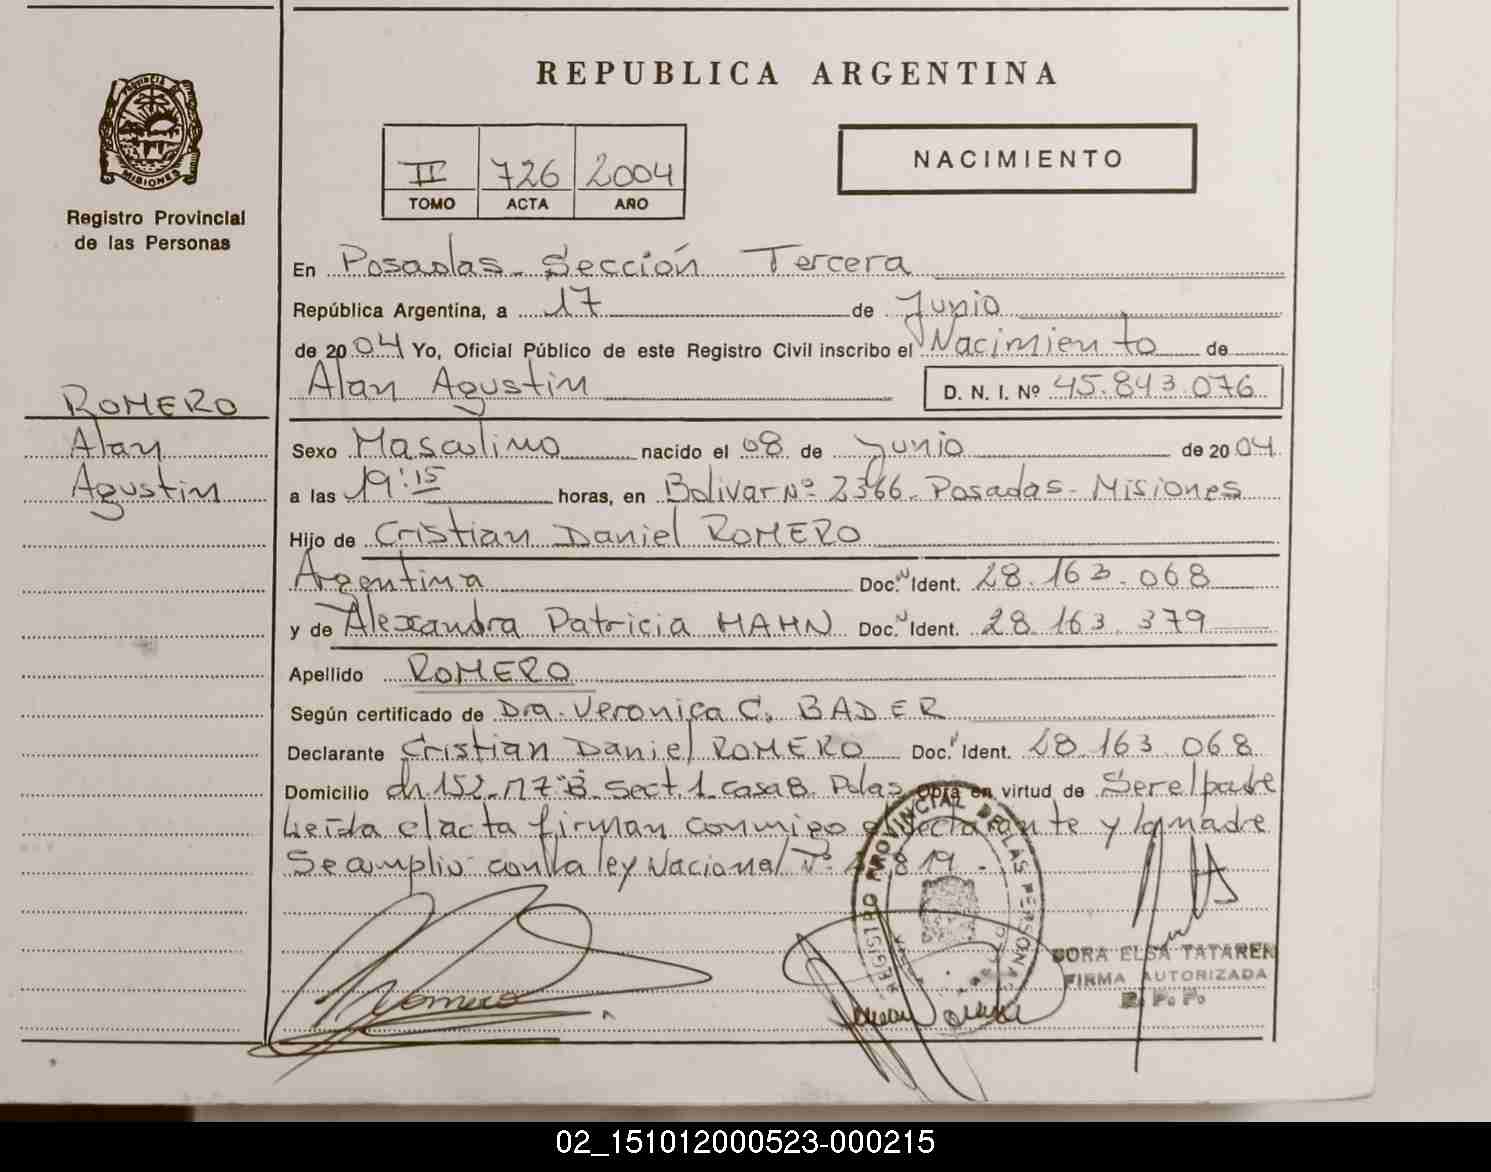 REPUBLICA ARGENTINA
PROVINCIA DE
MISIONES
Registro Provincial
de las Personas
II 726 2004
TOMO ACTA AÑO
NACIMIENTO
En Posadas - Sección Tercera
República Argentina, a 17 de Junio
de 2004 Yo, Oficial Público de este Registro Civil inscribo el Nacimiento de
Alan Agustin D. N. I. Nº 45.843.076
ROMERO
Alan
Agustin
Sexo Masculino nacido el 08 de Junio de 2004
a las 19:15 horas, en Bolivar Nº 2366 - Posadas - Misiones
Hijo de Cristian Daniel ROMERO
Argentina Doc. Ident. 28.163.068
y de Alexandra Patricia HAHN Doc. Ident. 28.163.379
Apellido ROMERO
Según certificado de Dra. Veronica C. BADER
Declarante Cristian Daniel ROMERO Doc. Ident. 28.163.068
Domicilio ch 152 - Mz B - Sect. 1 - Casa 8 - Pdas Obra en virtud de Ser el padre
Leída el acta firman conmigo el declarante y la madre
Se amplio con la ley Nacional Nº 819 -
REGISTRO PROVINCIAL DE LAS PERSONAS
Romero
DORA ELSA TATAREN
FIRMA AUTORIZADA
R. P. P.
02_151012000523-000215